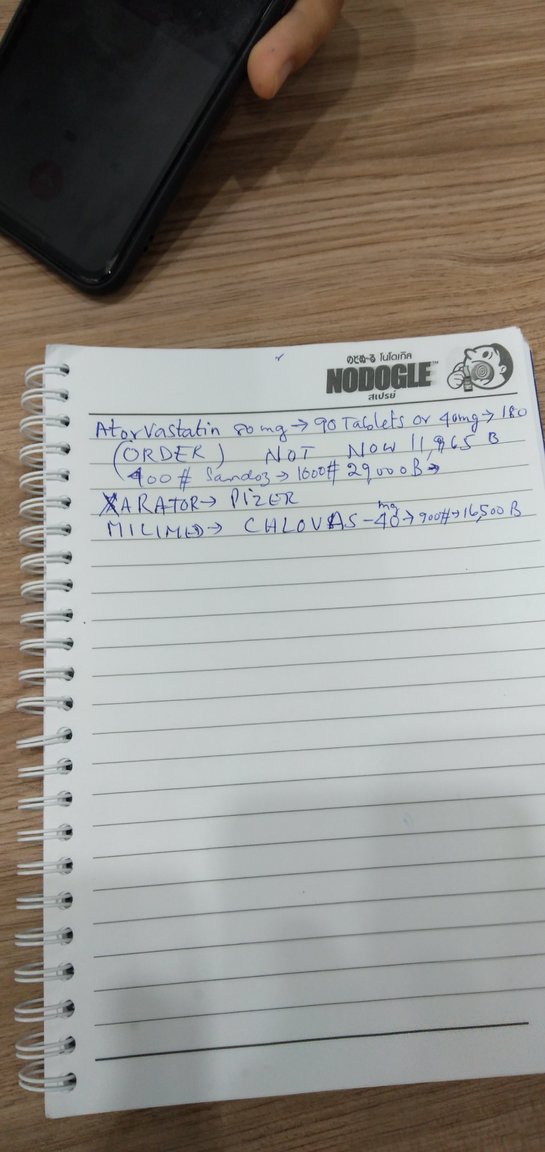 のどぬ~る โนโดเกิล
NODOGLE™
สเปรย์
Atorvastatin 80mg → 90 Tablets or 40mg → 180
(ORDER) NOT NOW 11,865 B
400 # Sandoz → 1000# 29000B →
XARATOR → PIZER
MILIMED → CHLOVAS - 40mg → 900# → 16,500 B